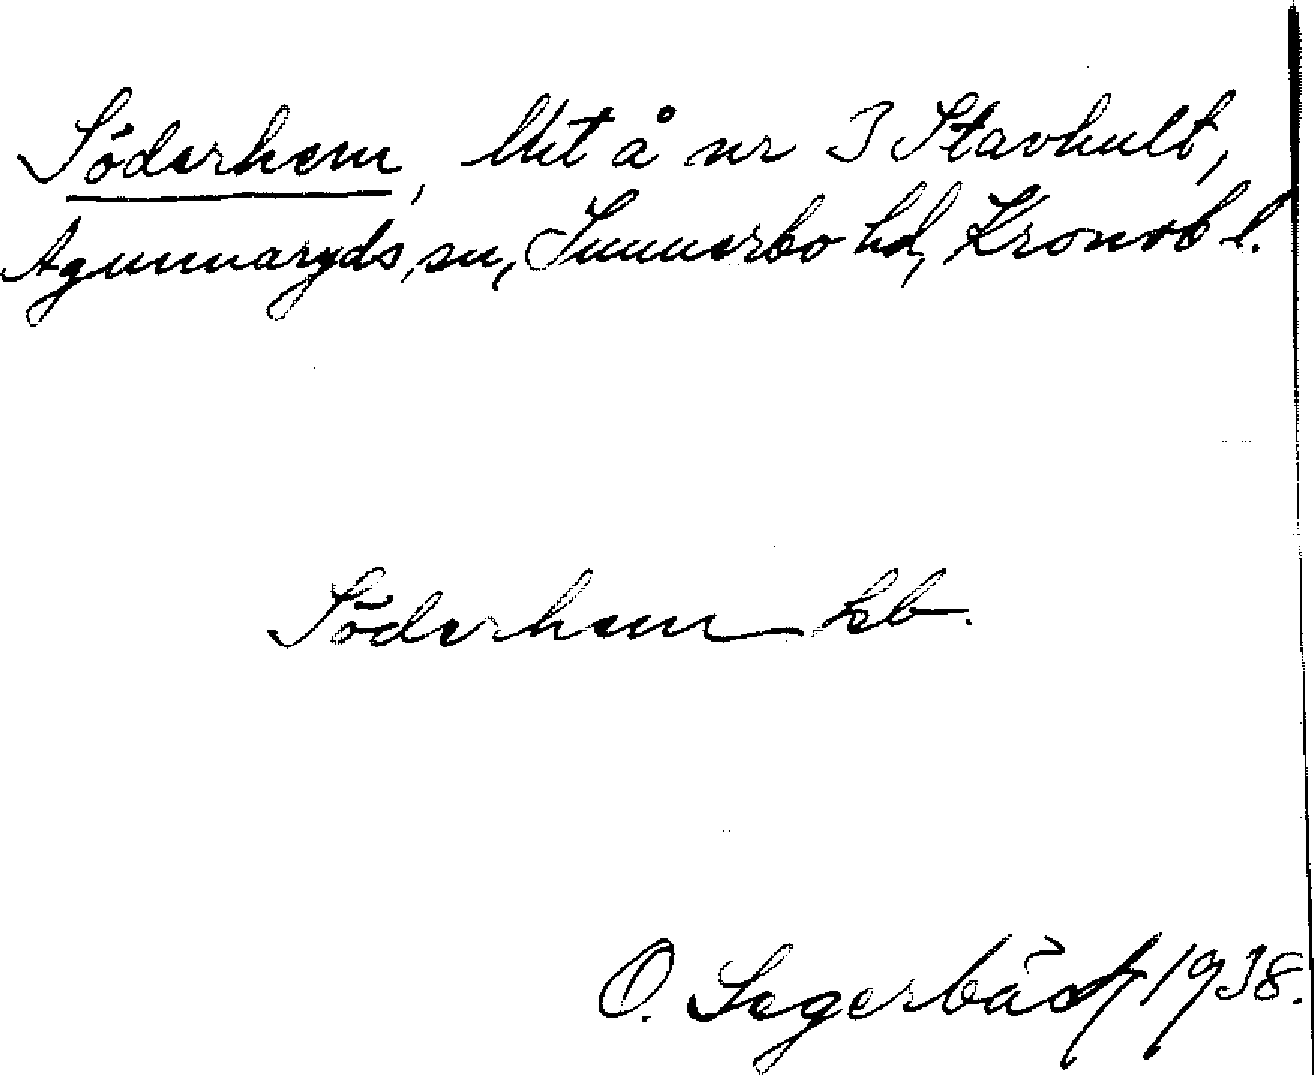 Söderhem, lht å nr 3 Stavhult,
Agunnaryds sn, Sunnerbo hd, Kronob l.
Söderhem hb.
O. Segerbäck 1938.